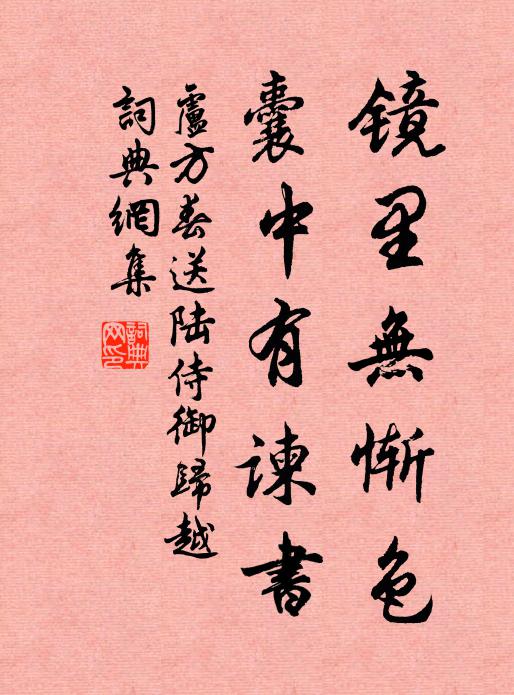 镜里無惭色
囊中有諫書
盧方春送陆侍御歸越
詞典網集
詞典网印